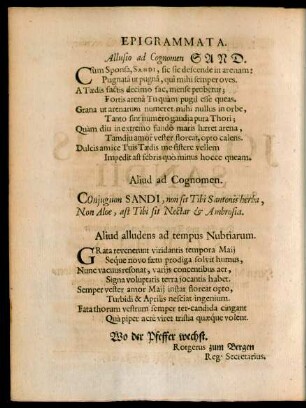 EPIGRAMMATA.
Allusio ad Cognomen SAND.
Cum Sponsa, SANDI, sic sic descende in arenam:
Pugnatâ ut pugnâ, qui mihi semper oves.
A Tædis factis decimo fac, mense probetur;
Fortis arenâ Tu quàm pugil esse queas.
Grana ut arenarum numeret mihi nullus in orbe,
Tanto sint numero gandia pura Thori;
Quàm diu in extremo fundo maris hæret arena,
Tamdiu amor vester floreat, opto calens.
Dulcis amice Tuis Tædis me sistere vellem
Impedit ast febris quò minus hocce queam.
Aliud ad Cognomen.
COnjugium SANDI, non sit Tibi Santonis herba,
Non Aloe, ast Tibi sit Nectar & Ambrosia.
Aliud alludens ad tempus Nubtiarum.
GRata revenerunt viridantis tempora Maij
Seque novo fœtu prodiga solvit humus,
Nunc vacuus resonat, variis concentibus aer,
Signa voluptatis terra jocantis habet.
Semper vester amor Maij instar floreat opto,
Turbidi & Aprilis nesciat ingenium.
Fata thorum vestrum semper ter-candida cingant
Quà piper acre viret tristia quæque volent.
Wo der Pfeffer wechst.
Rotgerus zum Bergen
Reg: Secretarius.